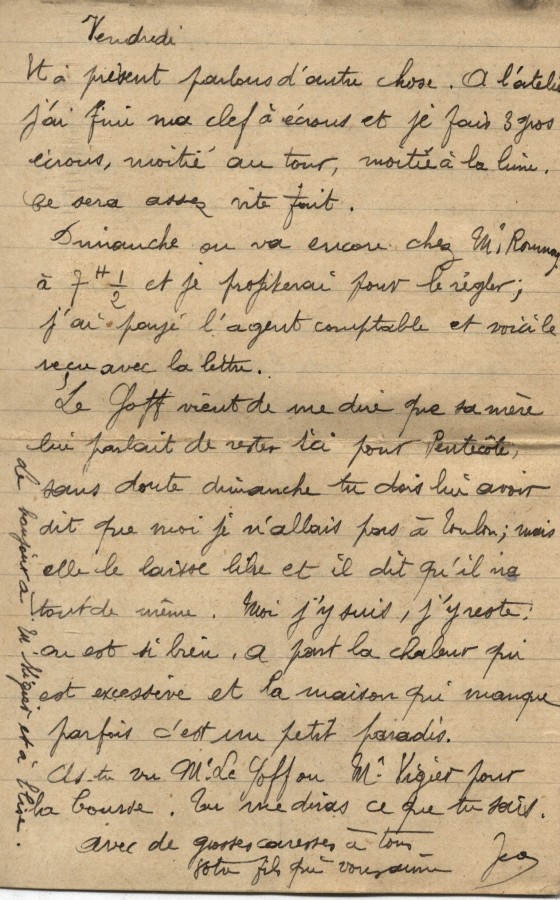 Vendredi
Et à présent parlons d'autre chose. A l'atelie
j'ai fini ma clef à écrous et je fais 3 gros
écrous, moitié au tour, moitié à la lime.
Ce sera assez vite fait.
Dimanche on va encore chez Mr
à 7H 1/2 et je profiterai pour le régler;
j'ai payé l'agent comptable et voici le
reçu avec la lettre.
Le Goff vient de me dire que sa mère
lui parlait de rester ici pour Pentecôte,
sans doute dimanche tu dois lui avoir
dit que moi je n'allais pas à Toulon; mais
elle le laisse libre et il dit qu'il ira
tout de même. Moi j'y suis, j'y reste:
on est si bien. A part la chaleur qui
est excessive et la maison qui manque
parfois c'est un petit paradis.
As-tu vu Mr Le Goff ou Mr Vigier pour
la bourse. Tu me diras ce que tu sais.
avec de grosses caresses à tous
votre fils qui vous aime
Le bonjour à et à Elise.